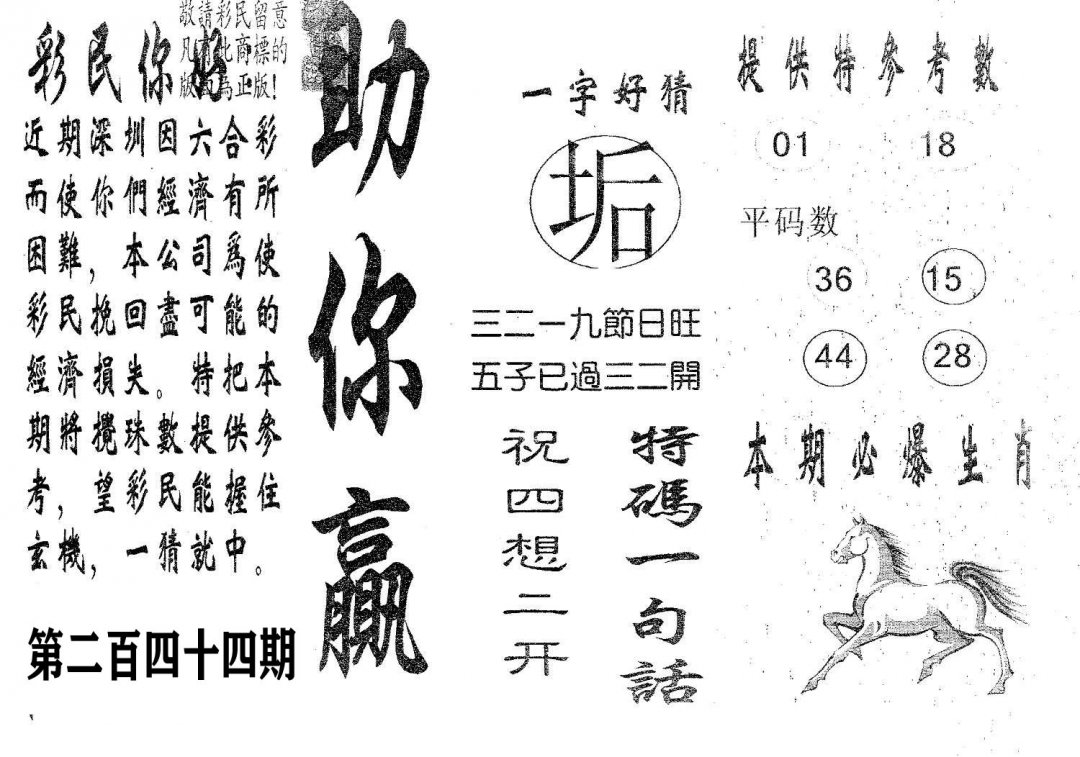 敬請彩民留意
版！
彩民你好
近期深圳因六合彩
而使你們經濟有所
困難，本公司爲使
彩民挽回盡可能的
經濟損失。特把本
期將攪珠數提供參
考，望彩民能握住
玄機，一猜就中。
第二百四十四期
助你贏
一字好猜
垢
三二一九節日旺
五子已過三二開
特碼一句話
祝四想二开
提供特參考數
01 18
平码数
36 15
44 28
本期必爆生肖